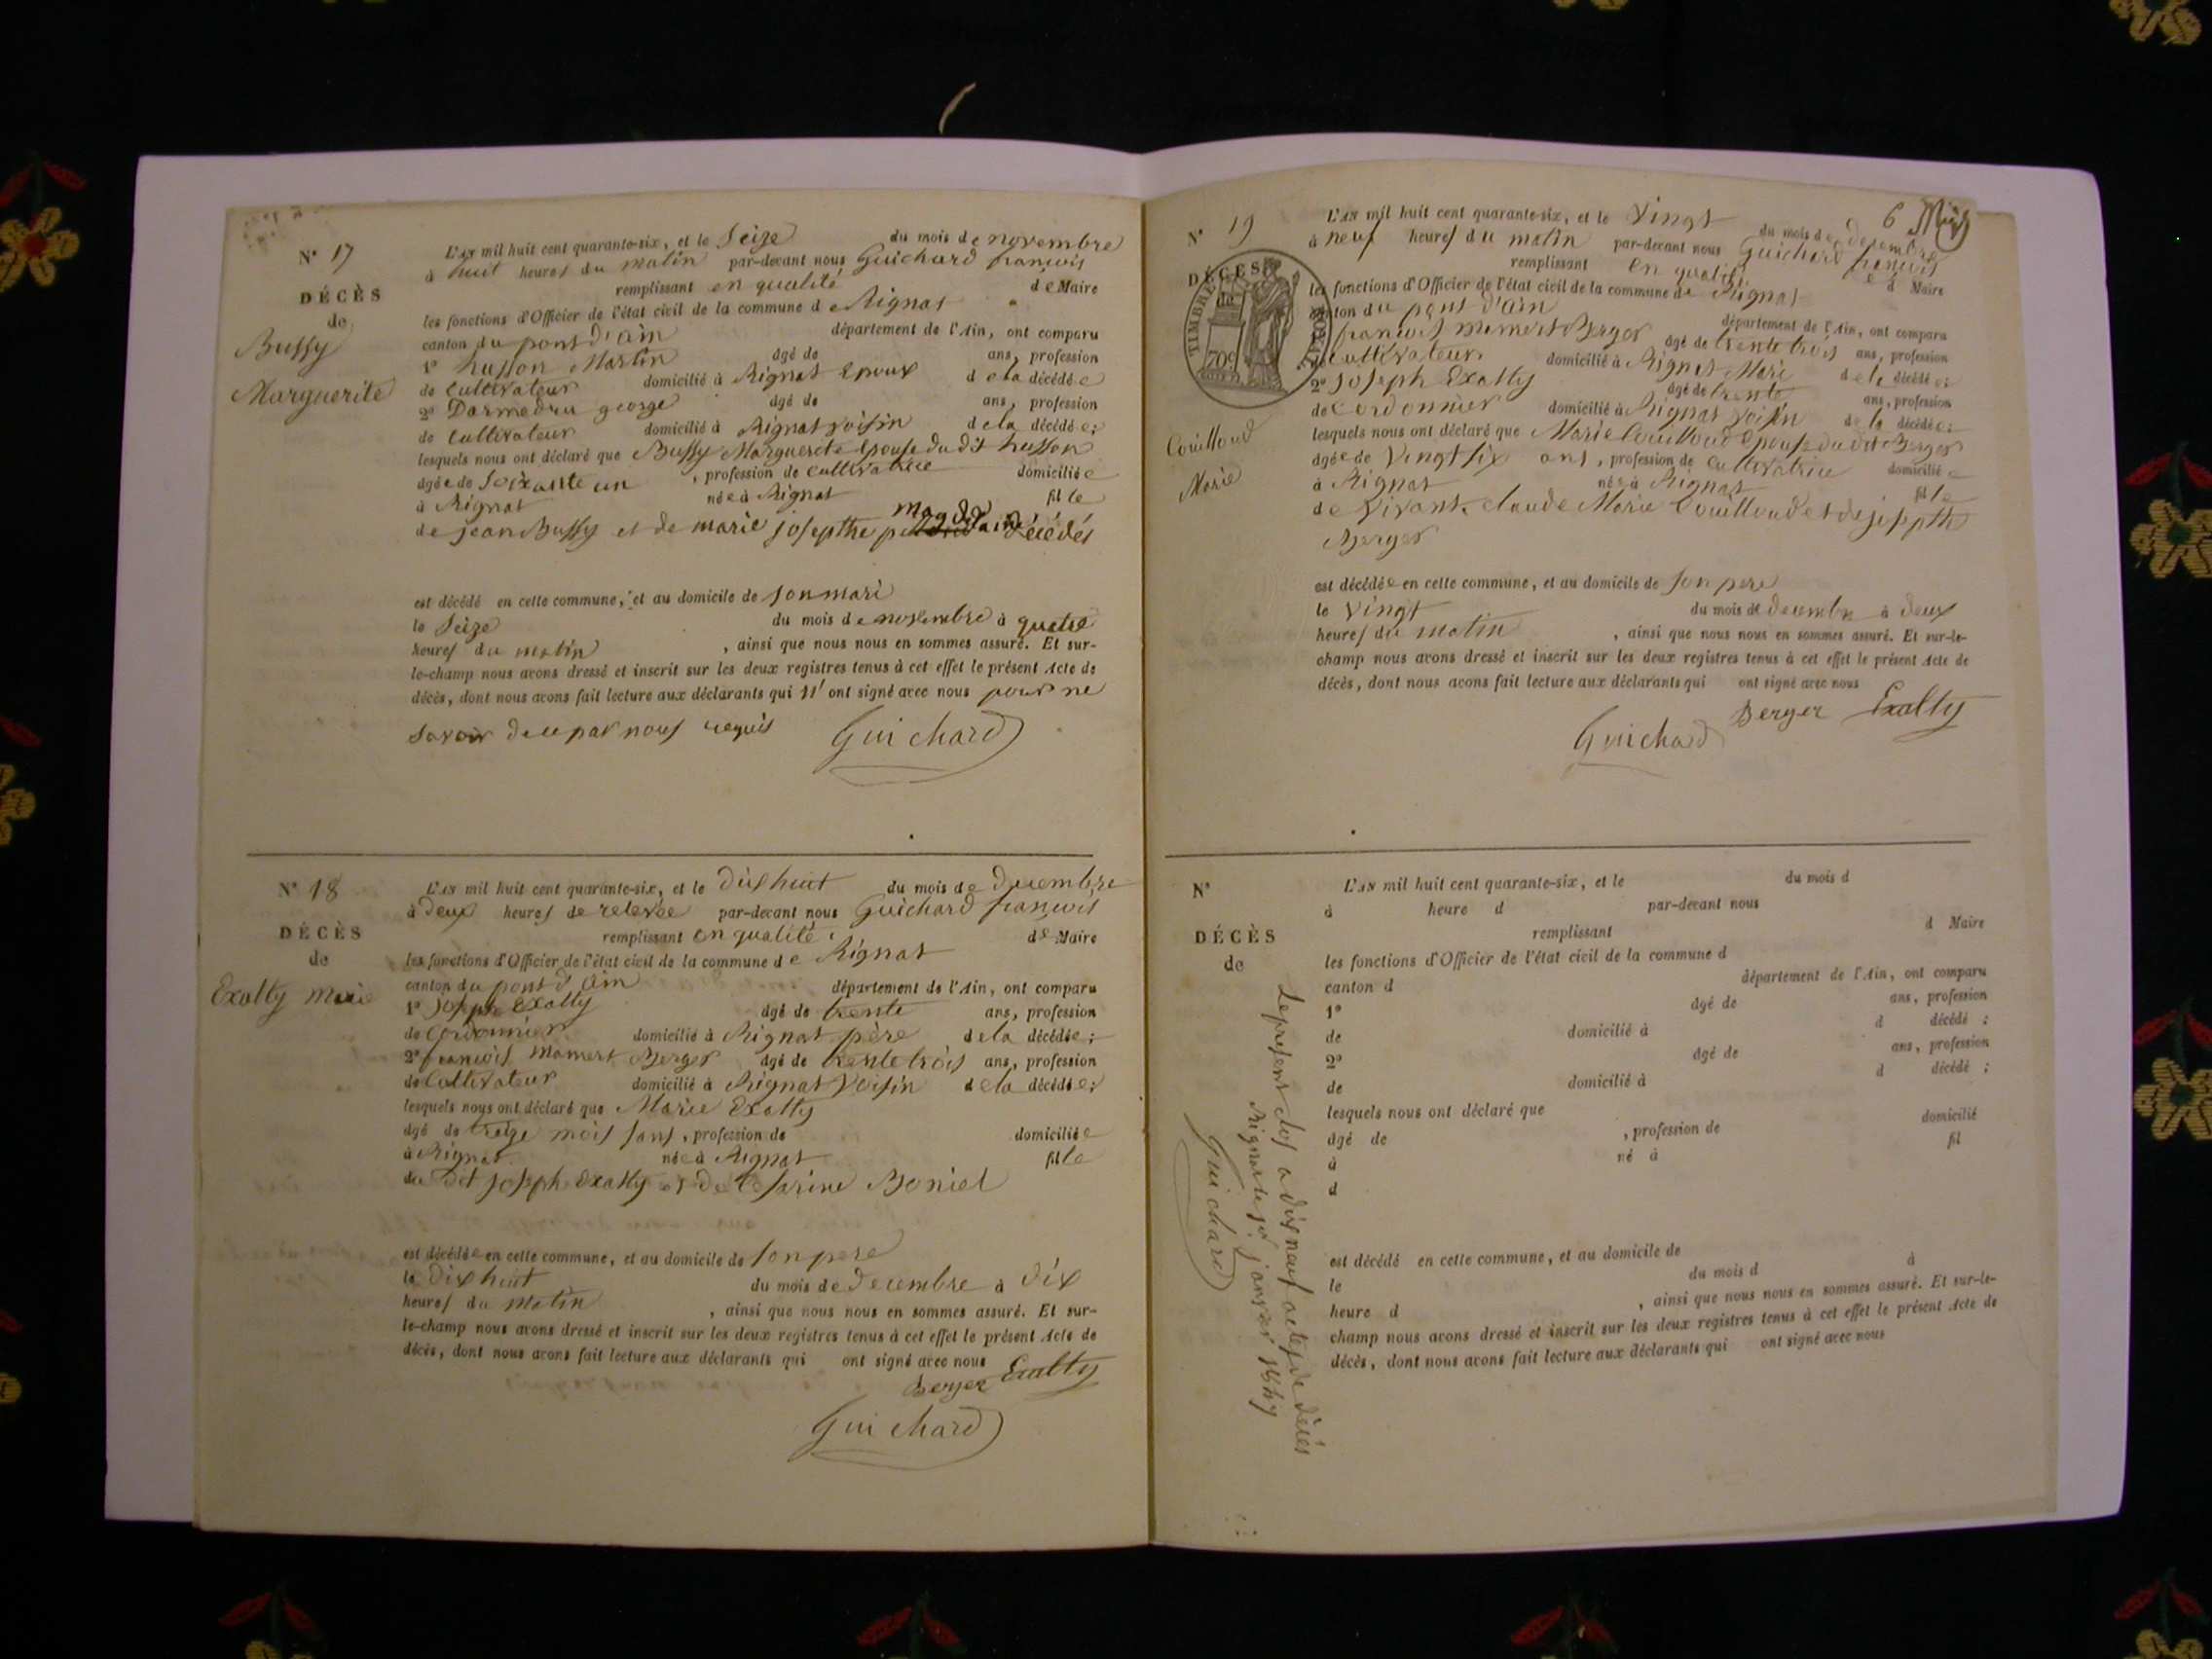 N° 17
DÉCÈS
de
Bussy
Marguerite
L'an mil huit cent quarante-six, et le Seize du mois de novembre
à huit heures du matin par-devant nous Guichard françois
remplissant en qualité de Maire
les fonctions d'Officier de l'état civil de la commune de Rignat
canton du pont d'ain département de l'Ain, ont comparu
1° husson Martin âgé de ans, profession
de Cultivateur domicilié à Rignat Epoux de la décédée
2° Darmedru george âgé de ans, profession
de Cultivateur domicilié à Rignat voisin de la décédée;
lesquels nous ont déclaré que Bussy Marguerite Epouse du dit husson
âgée de Soixante un , profession de Cultivatrice domiciliée
à Rignat née à Rignat fille
de jean Bussy et de marie josepthe décédés
est décédé en cette commune, et au domicile de son mari
le Seize du mois de novembre à quatre
heures du matin , ainsi que nous nous en sommes assuré. Et sur-
le-champ nous avons dressé et inscrit sur les deux registres tenus à cet effet le présent Acte de
décès, dont nous avons fait lecture aux déclarants qui n'ont signé avec nous pour ne
savoir de ce par nous requis Guichard
N° 18
DÉCÈS
de
Exatty Marie
L'an mil huit cent quarante-six, et le Dix huit du mois de Decembre
à Deux heures de relevée par-devant nous Guichard françois
remplissant en qualité de Maire
les fonctions d'Officier de l'état civil de la commune de Rignat
canton du pont d'ain département de l'Ain, ont comparu
1° Joseph Exatty âgé de trente ans, profession
de Cordonnier domicilié à Rignat père de la décédée;
2° françois Mamert Berger âgé de trente trois ans, profession
de Cultivateur domicilié à Rignat Voisin de la décédée;
lesquels nous ont déclaré que Marie Exatty
âgé de treize mois sans , profession de domiciliée
à Rignat née à Rignat fille
du Dit Joseph Exatty et de Cesarine Boniel
est décédée en cette commune, et au domicile de son pere
le Dix huit du mois de Decembre à Dix
heures du Matin , ainsi que nous nous en sommes assuré. Et sur-
le-champ nous avons dressé et inscrit sur les deux registres tenus à cet effet le présent Acte de
décès, dont nous avons fait lecture aux déclarants qui ont signé avec nous
Berger Exatty
Guichard
6
N° 19
DÉCÈS
de
TIMBRE ROYAL
70c
Couilloud
Marie
L'an mil huit cent quarante-six, et le Vingt du mois de decembre
à neuf heures du matin par-devant nous Guichard françois
remplissant en qualité de Maire
les fonctions d'Officier de l'état civil de la commune de Rignat
canton du pont d'ain département de l'Ain, ont comparu
françois mamert Berger âgé de trente trois ans, profession
de Cultivateur domicilié à Rignat Mari de la décédée;
2° Joseph Exatty âgé de trente ans, profession
de Cordonnier domicilié à Rignat voisin de la décédée;
lesquels nous ont déclaré que Marie Couilloud Epouse du dit Berger
âgée de Vingt six ans , profession de Cultivatrice domiciliée
à Rignat née à Rignat fille
de Vivant claude Marie Couilloud et de
Berger
est décédée en cette commune, et au domicile de son pere
le Vingt du mois de decembre à deux
heures du matin , ainsi que nous nous en sommes assuré. Et sur-le-
champ nous avons dressé et inscrit sur les deux registres tenus à cet effet le présent Acte de
décès, dont nous avons fait lecture aux déclarants qui ont signé avec nous
Berger Exatty
Guichard
N°
DÉCÈS
de
L'an mil huit cent quarante-six, et le du mois d
à heure d par-devant nous
remplissant d Maire
les fonctions d'Officier de l'état civil de la commune d
canton d département de l'Ain, ont comparu
1° âgé de ans, profession
de domicilié à d décédé ;
2° âgé de ans, profession
de domicilié à d décédé ;
lesquels nous ont déclaré que
âgé de , profession de domicilié
à né à fil
d
est décédé en cette commune, et au domicile de
le du mois d à
heure d , ainsi que nous nous en sommes assuré. Et sur-le-
champ nous avons dressé et inscrit sur les deux registres tenus à cet effet le présent Acte de
décès, dont nous avons fait lecture aux déclarants qui ont signé avec nous
Le present clos a dix neuf actes de décès
Rignat le 1er janvier 1847
Guichard